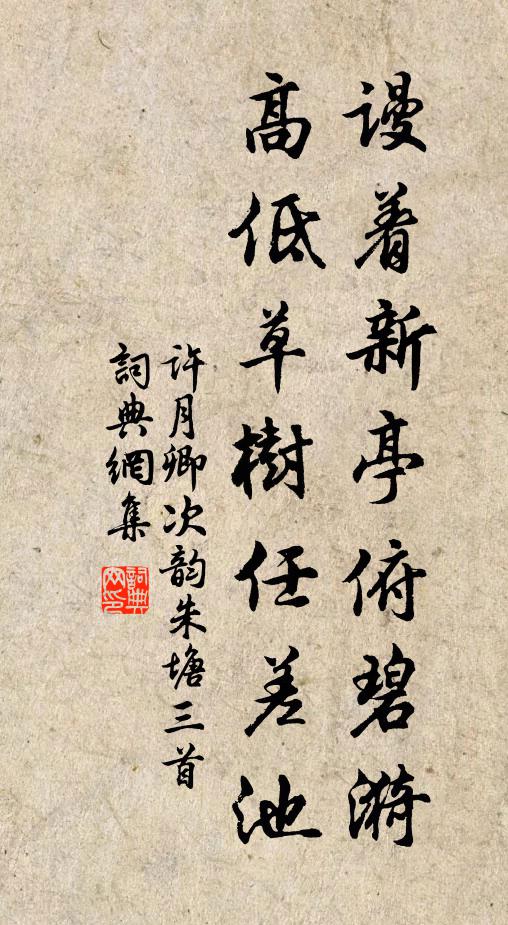 謾着新亭俯碧漪
高低草樹任差池
許月卿次韵朱塘三首
詞典網集
詞典网印